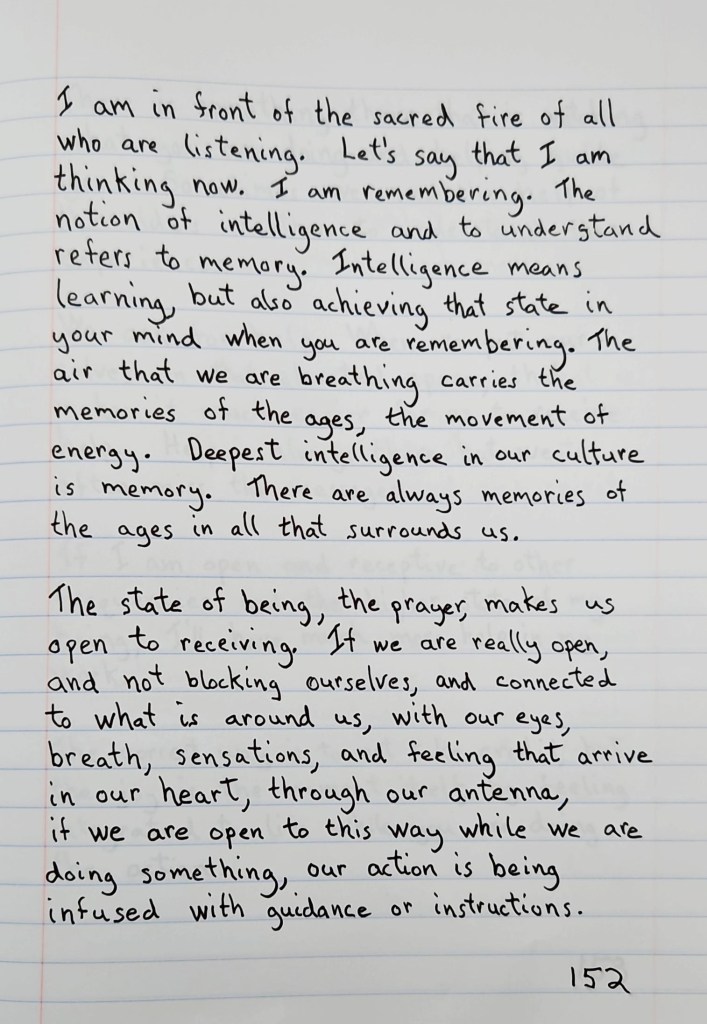 I am in front of the sacred fire of all
who are listening. Let's say that I am
thinking now. I am remembering. The
notion of intelligence and to understand
refers to memory. Intelligence means
learning, but also achieving that state in
your mind when you are remembering. The
air that we are breathing carries the
memories of the ages, the movement of
energy. Deepest intelligence in our culture
is memory. There are always memories of
the ages in all that surrounds us.

The state of being, the prayer, makes us
open to receiving. If we are really open,
and not blocking ourselves, and connected
to what is around us, with our eyes,
breath, sensations, and feeling that arrive
in our heart, through our antenna,
if we are open to this way while we are
doing something, our action is being
infused with guidance or instructions.

152